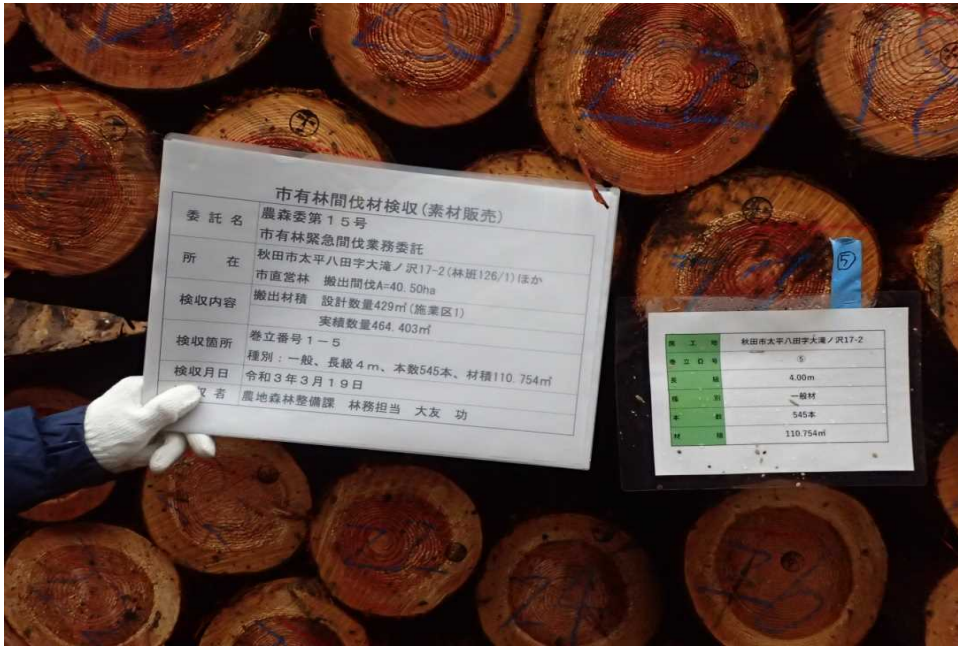 市有林間伐材検収(素材販売)
委託名 農森委第15号
市有林緊急間伐業務委託
所在 秋田市太平八田字大滝ノ沢17-2(林班126/1)ほか
市直営林 搬出間伐A=40.50ha
検収内容 搬出材積 設計数量429㎥(施業区1)
実績数量464.403㎥
検収箇所 巻立番号1-5
種別:一般、長級4m、本数545本、材積110.754㎥
検収月日 令和3年3月19日
収者 農地森林整備課 林務担当 大友 功
⑤
施工地 秋田市太平八田字大滝ノ沢17-2
巻立番号 ⑤
長級 4.00m
種別 一般材
本数 545本
材積 110.754㎥